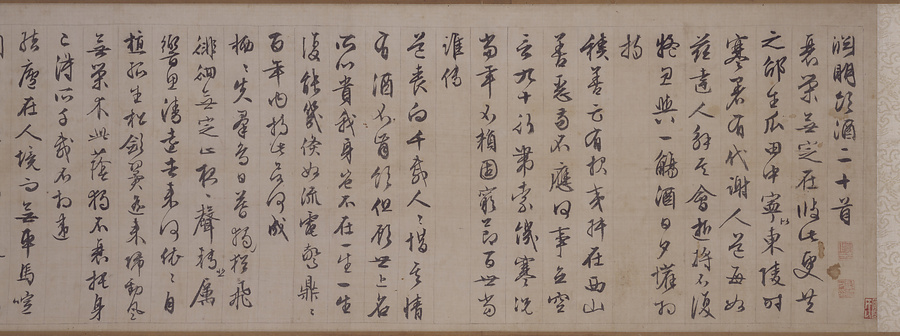 淵明飲酒二十首
衰榮無定在彼此更共
之邵生瓜田中寧似東陵時
寒暑有代謝人道每如
茲達人解其會逝將不復
疑忽與一觴酒日夕歡相
持
積善云有報夷叔在西山
善惡苟不應何事立空
言九十行帶索饑寒況
當年不賴固窮節百世當
誰傳
道喪向千載人々惜其情
有酒不肯飲但顧世上名
所以貴我身豈不在一生一生
復能幾倏如流電驚鼎々
百年內持此欲何成
栖々失羣鳥日暮猶獨飛
徘徊無定止夜々聲轉悲厲
響思清遠去來何依々因
值孤生松斂翮遙來歸勁風
無榮木此蔭獨不衰托身
已得所千載不相違
結廬在人境而無車馬喧